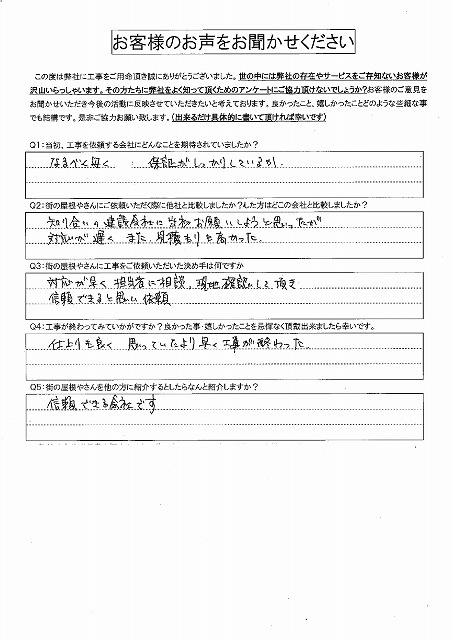 お客様のお声をお聞かせください
この度は弊社に工事をご用命頂き誠にありがとうございました。世の中には弊社の存在やサービスをご存知ないお客様が
沢山いらっしゃいます。その方たちに弊社をよく知って頂くためのアンケートにご協力頂けないでしょうか？お客様のご意見を
お聞かせいただき今後の活動に反映させていただきたいと考えております。良かったこと、嬉しかったことどのような些細な事
でも結構です。是非ご協力お願い致します。（出来るだけ具体的に書いて頂ければ幸いです）
Q1：当初、工事を依頼する会社にどんなことを期待されていましたか？
なるべく 保証がしっかりしているか．
Q2：街の屋根やさんにご依頼いただく際に他社と比較しましたか？した方はどこの会社と比較しましたか？
知り合いの建設会社に当初お願いしようと思ったが
対応が遅く また、見積もりも高かった．
Q3：街の屋根やさんに工事をご依頼いただいた決め手は何ですか
対応が早く 担当者に相談、現地確認して頂き
信頼できると思い依頼
Q4：工事が終わってみていかがですか？良かった事・嬉しかったことを忌憚なく頂戴出来ましたら幸いです。
仕上りも良く 思っていたより早く工事が終わった．
Q5：街の屋根やさんを他の方に紹介するとしたらなんと紹介しますか？
信頼できる会社です